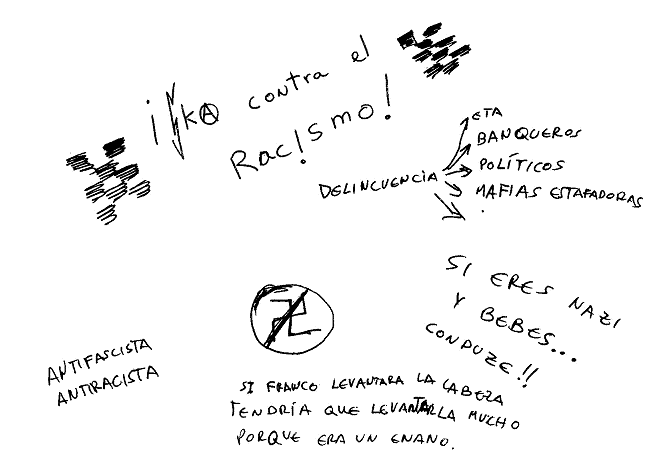 ¡SKA contra el
Racismo!
DELINCUENCIA
ETA
BANQUEROS
POLÍTICOS
MAFIAS ESTAFADORAS
SI ERES NAZI
Y BEBES...
CONDUZE!!
ANTIFASCISTA
ANTIRACISTA
SI FRANCO LEVANTARA LA CABEZA
TENDRÍA QUE LEVANTARLA MUCHO
PORQUE ERA UN ENANO.